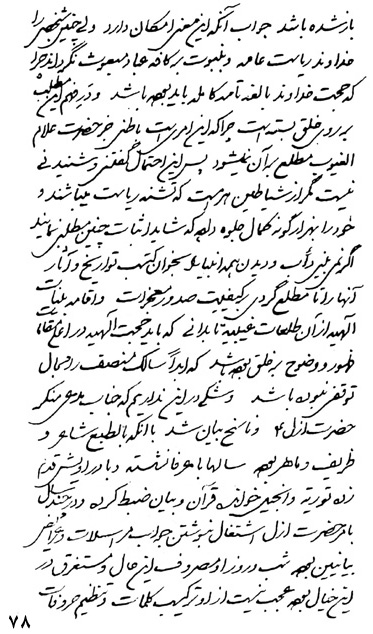 باز شده باشد جواب آنکه این معنی امکان دارد ولی چنین شخصی را
خداوند ریاست عامه و بر کافه عباد مبعوث نگرداند چرا
که حجت خداوند بالغه تامه کامله باید بوده باشد و در فهم این مطلب
بر روی خلق بسته است چرا که این امریست باطنی جز حضرت علام
الغیوب مطلع بر آن نمیشود پس این احتمال گفتنی و شنیدنی
نیست مگر از شیاطین که تشنه ریاست میباشند و
خود را بهزار گونه کمال جلوه داده که شاید اثبات چنین مطلبی نمایند
اگر و دیدن همه انبیا بخوان کتب تواریخ و آثار
آنها را تا مطلع گردی کیفیت صدور معجزات و اقامه بینات
الهیه از آن طلعات غیبیه تا بدانی که باید حجت الهیه در اعلی مقام
ظهور و وضوح بر خلق بوده باشد که ابداً سالک منصف را مجال
توقف نبوده باشد و شکی در این نداریم که جناب مدعی منکر
حضرت ازل و ناسخ بیان شد با آنکه بالطبع شاعر و
ظریف و ماهر بوده سالها با عرفا نشسته و با دراویش قدم
زده توریة و انجیل خوانده قرآن و بیان ضبط کرده و در چند سال
بامر حضرت ازل اشتغال بنوشتن جواب مراسلات و عرایض
بیانیین بوده شب و روز او مصروف این حال و مستغرق در
این خیال بوده عجب نیست از او ترکیب کلمات و تنظیم حروفات
۷۸